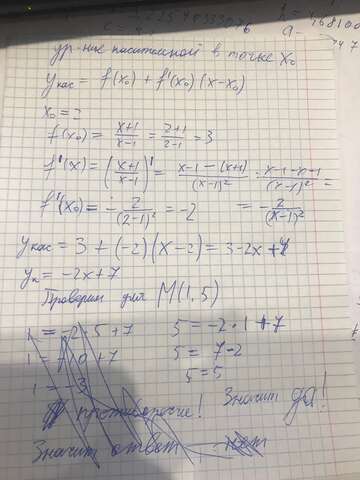 ур-ние касательной в точке x₀
y кас = f(x₀) + f'(x₀)(x-x₀)
x₀ = 2
f(x₀) = x+1/x-1 = 2+1/2-1 = 3
f'(x) = (x+1/x-1)' = x-1-(x+1)/(x-1)² = x-1-x-1/(x-1)² =
f'(x₀) = - 2/(2-1)² = -2 = - 2/(x-1)²
y кас = 3 + (-2)(x-2) = 3-2x+4
yк = -2x+7
Проверим для M(1,5)
1 = -2·5+7 5 = -2·1+7
1 = -10+7 5 = 7-2
1 = -3 5 = 5
противоречие! Значит да!
Значит ответ нет